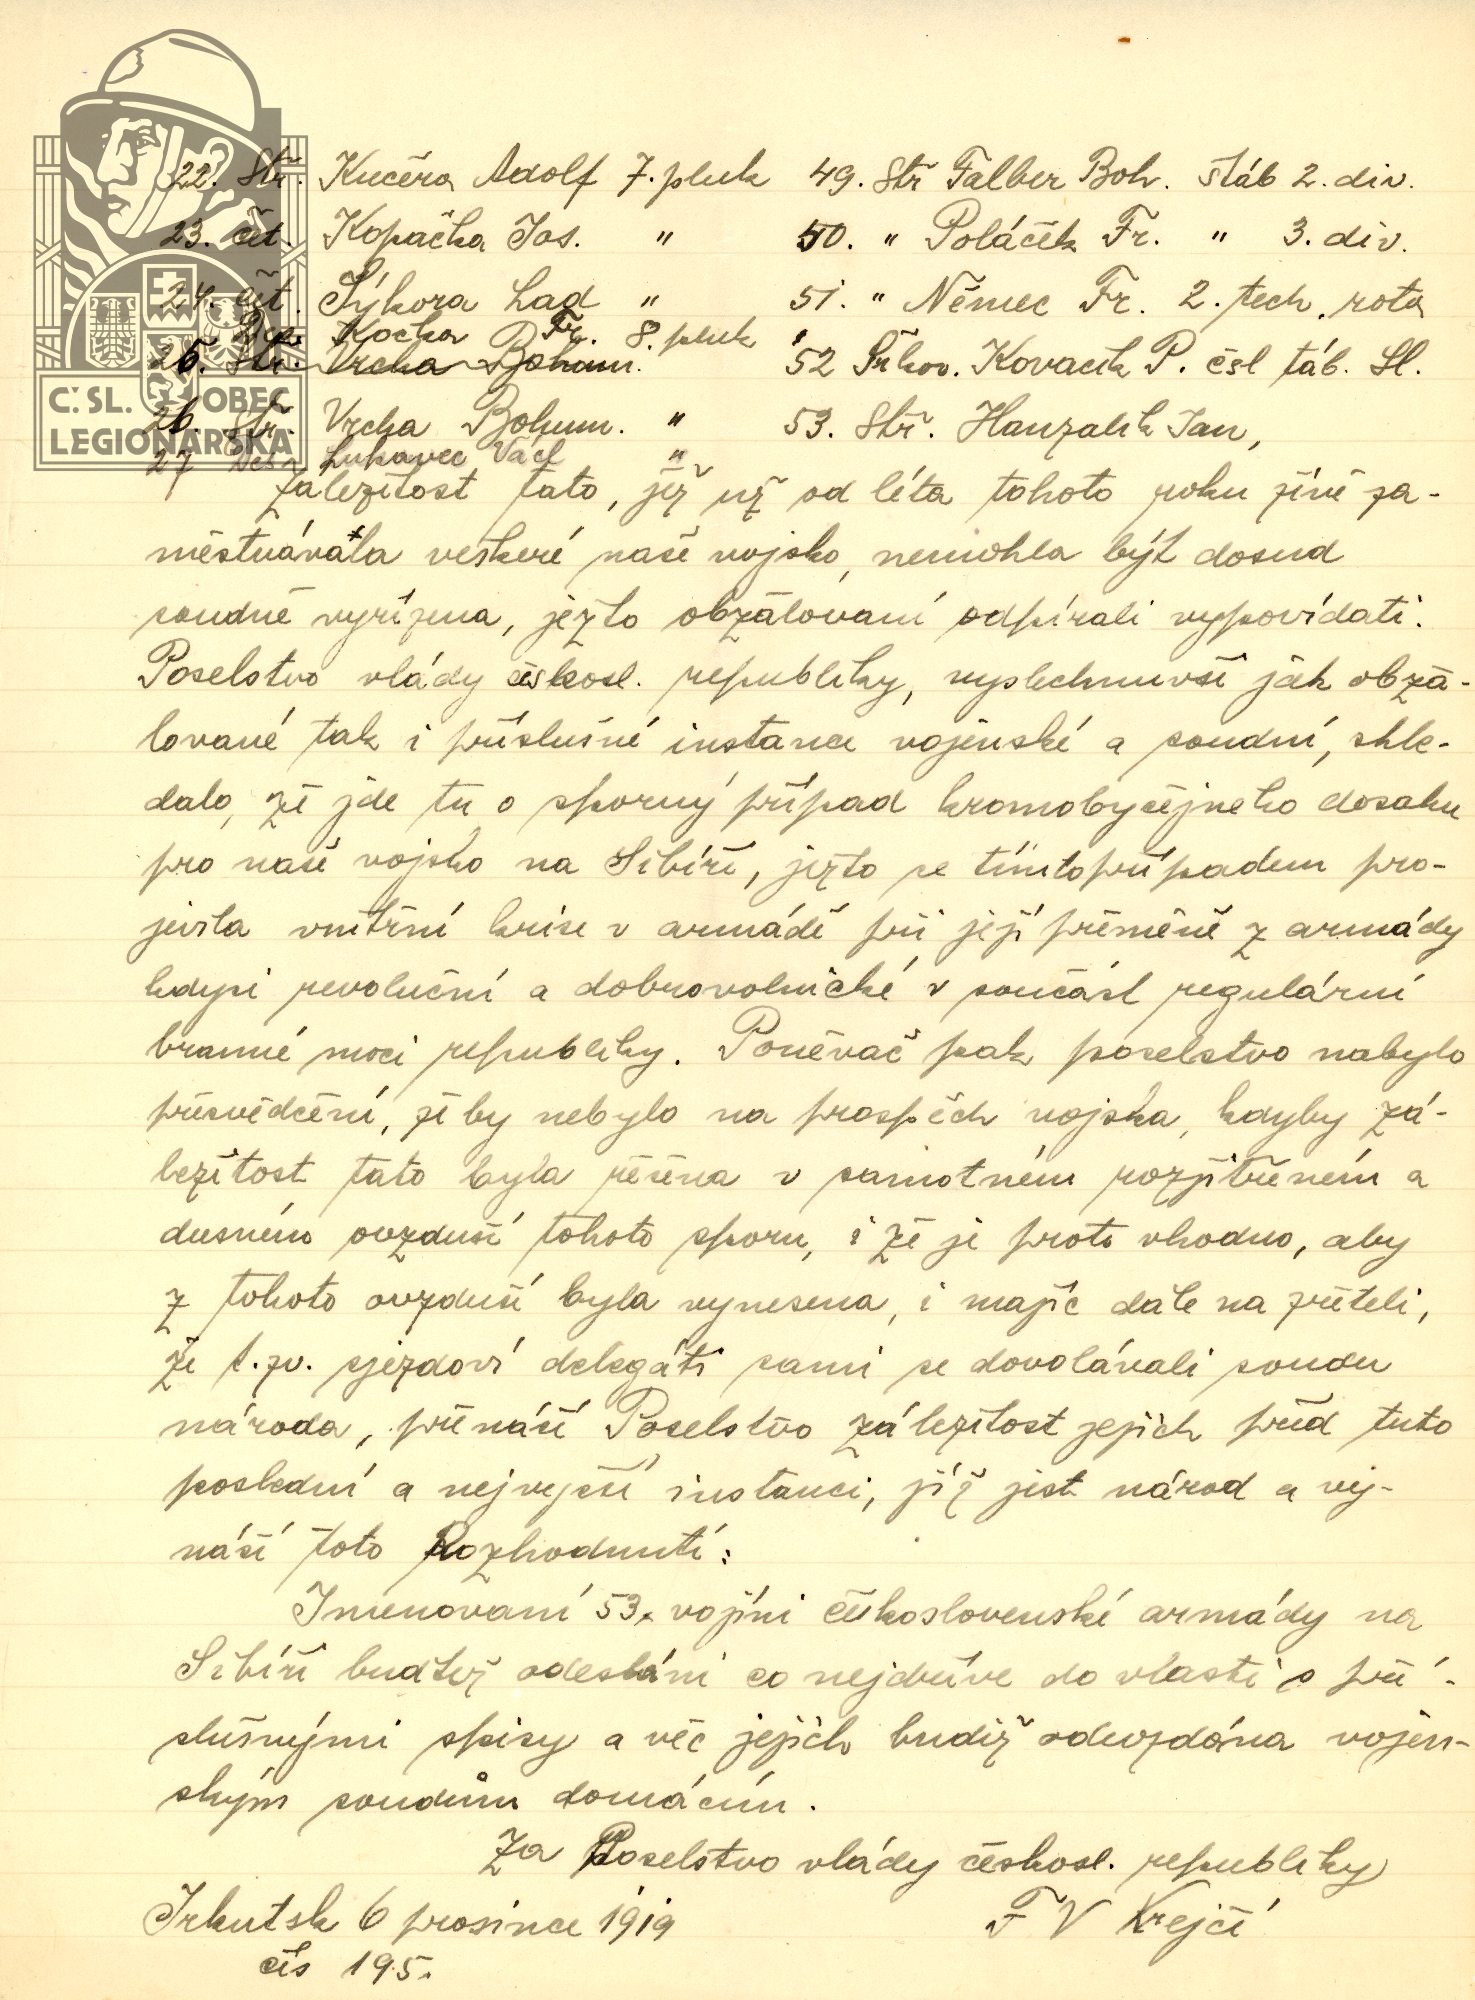 22. Stř. Kučera Adolf 7. pluk 49. Stř Falber Boh. Štáb 2. div.
23. čet. Kopačka Jos. " 50. " Poláček Fr. " 3. div.
24. čet. Sýkora Lad " 51. " Němec Fr. 2. tech. rota
Des. Kočka Fr. 8. pluk
25. Stř. Vrcha Bohum. 52 Šikov. Kovačik P. čsl táb. Sl.
26. Stř. Vrcha Bohum. " 53. Stř. Hanzalik Jan,
27 Des. Lukavec Václ "
Záležitost tato, jež už od léta tohoto roku živě za-
městnávala veškeré naše vojsko, nemohla být dosud
soudně vyřízena, ježto obžalovaní odpírali vypovídati.
Poselstvo vlády českosl. republiky, vyslechnuvši jak obža-
lované tak i příslušné instance vojenské a soudní, shle-
dalo, že jde tu o sporný případ kromobyčejneho dosahu
pro naše vojsko na Sibíři, ježto se tímto případem pro-
jevila vnitřní krise v armádě při její přeměně z armády
kdysi revoluční a dobrovolnické v součást regulární
branné moci republiky. Poněvač pak poselstvo nabylo
přesvědčení, že by nebylo na prospěch vojska, kdyby zá-
ležitost tato byla řešena v samotném rozjitřeném a
dusném ovzduší tohoto sporu, i že je proto vhodno, aby
z tohoto ovzduší byla vynesena, i majíc dále na zřeteli,
že t.zv. sjezdoví delegáti sami se dovolávali soudu
národa, přináší Poselstvo záležitost jejich před tuto
poslední a nejvyšší instanci, jíž jest národ a vy-
náší toto Rozhodnutí:
Jmenovaní 53. vojíni československé armády na
Sibíři buďtež odesláni co nejdříve do vlasti s pří-
slušnými spisy a věc jejich budiž odevzdána vojen-
ským soudům domácím.
Za Poselstvo vlády českosl. republiky
Irkutsk 6 prosince 1919 F V Krejčí
čís 195.
Č. SL. OBEC
LEGIONÁŘSKÁ